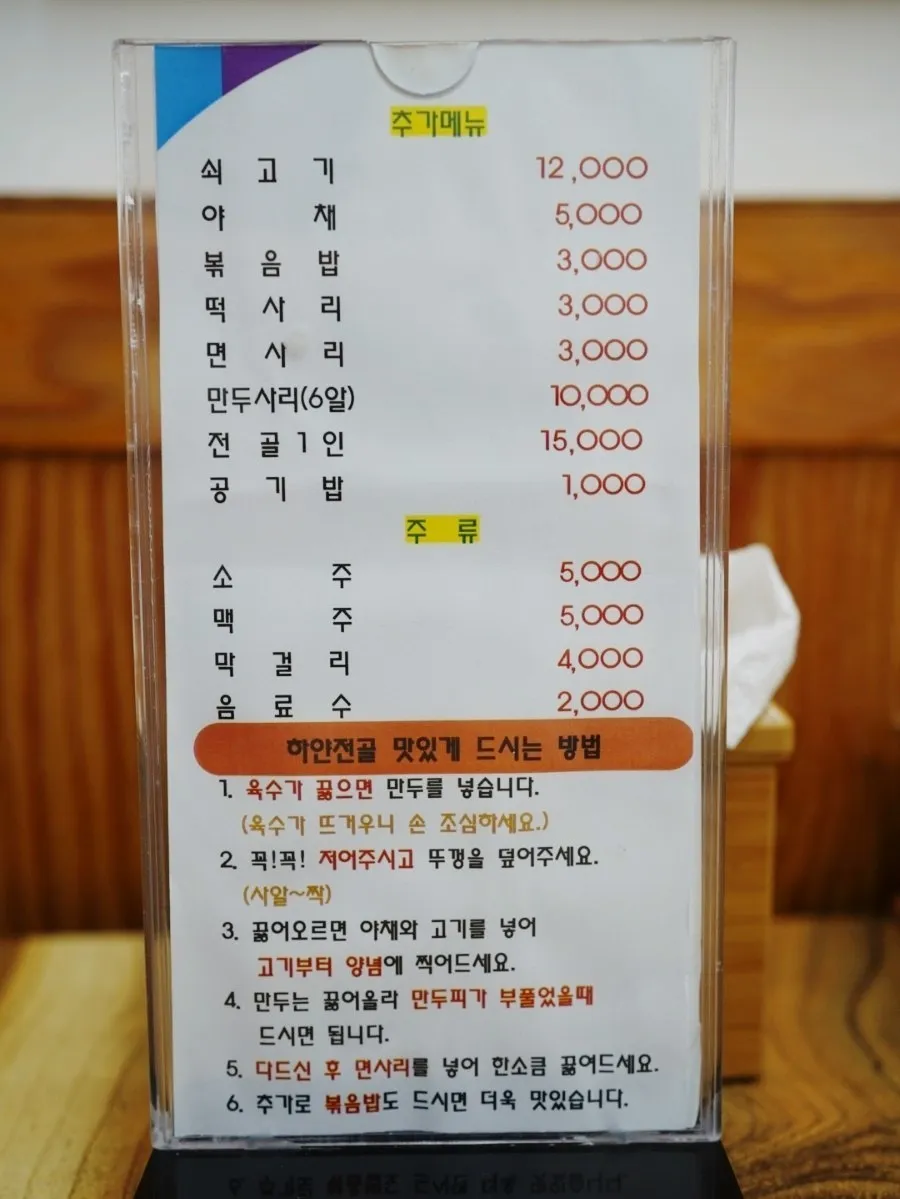 추가메뉴
쇠 고 기 12,000
야 채 5,000
볶 음 밥 3,000
떡 사 리 3,000
면 사 리 3,000
만두사리(6알) 10,000
전 골 1 인 15,000
공 기 밥 1,000
주 류
소 주 5,000
맥 주 5,000
막 걸 리 4,000
음 료 수 2,000
하얀전골 맛있게 드시는 방법
1. 육수가 끓으면 만두를 넣습니다.
(육수가 뜨거우니 손 조심하세요.)
2. 꼭!꼭! 저어주시고 뚜껑을 덮어주세요.
(사알~짝)
3. 끓어오르면 야채와 고기를 넣어
고기부터 양념에 찍어드세요.
4. 만두는 끓어올라 만두피가 부풀었을때
드시면 됩니다.
5. 다드신 후 면사리를 넣어 한소큼 끓여드세요.
6. 추가로 볶음밥도 드시면 더욱 맛있습니다.